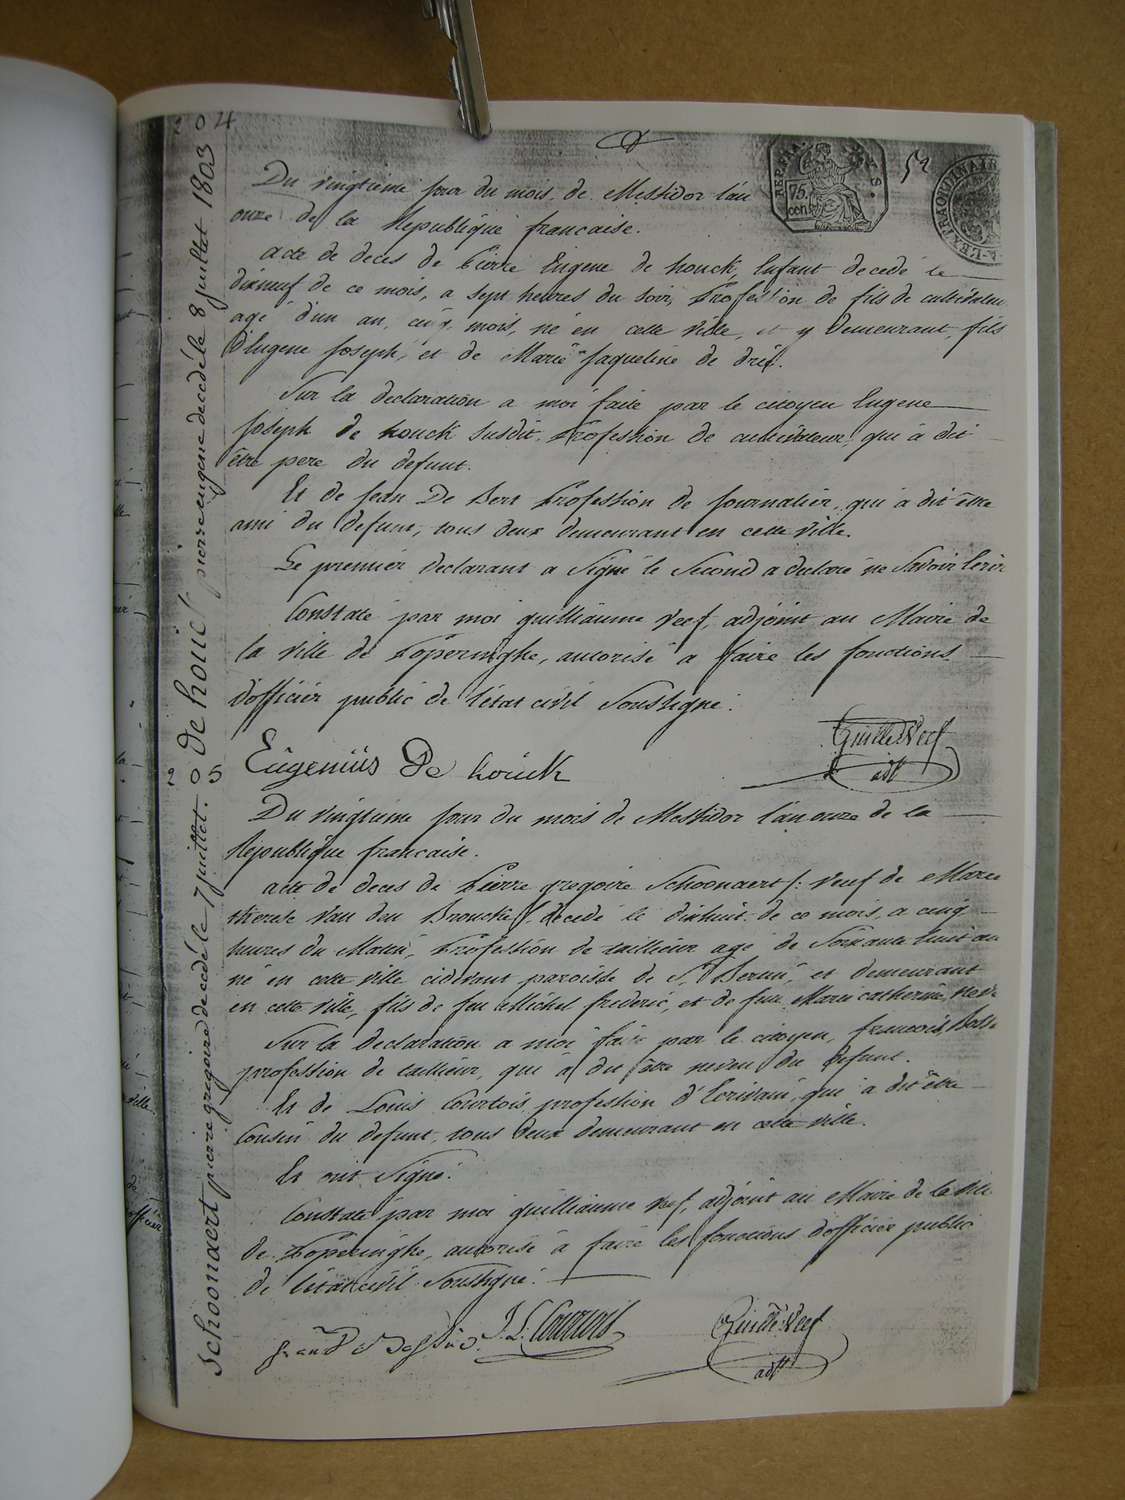 204
53
REP. FRA
75 cent
L'EXTRAORDINAIRE
Du vingtieme jour du mois de Messidor l'an
onze de la Republique francaise.
acte de deces de Pierre Eugene de houck, Enfant decedé le
dixneuf de ce mois, a sept heures du soir, Profession de fils de cultivateur
agé d'un an, cinq mois, né en cette ville, et y demeurant, fils
d'Eugene Joseph, et de Marie Jaqueline de
Sur la declaration a moi faite par le citoyen Eugene
Joseph de houck susdit, Profession de cultivateur, qui a dit
être pere du defunt.
Et de Jean De Bert Profession de Journalier, qui a dit être
ami du defunt, tous deux demeurant en cette ville.
Le premier declarant a signé le second a declaré ne savoir écrir
Constaté par moi guilliaume Veef, adjoint au Maire de
la ville de Poperinghe, autorisé a faire les fonctions
d'officier public de l'état civil Soussigné.
Eugenius De houck
Guille Veef
adt
de houck pierre eugene decedé le 8 juillet 1803
205
Du vingtieme jour du mois de Messidor l'an onze de la
Republique francaise.
acte de deces de Pierre gregoire Schoonaert /: veuf de Marie
therese Van den Broucke :/ decedé le dixhuit de ce mois, a cinq
heures du Matin, Profession de taillieur agé de Soixante huit an
né en cette ville cidevant paroisse de St Bertin, et demeurant
en cette ville, fils de feu Michel frederic, et de feue Marie catherine
Sur la declaration a moi faite par le citoyen, francois
profession de taillieur, qui a dit être neveu du defunt.
Et de Louis Courtois, profession d'Ecrivain, qui a dit être
Cousin du defunt, tous deux demeurant en cette ville.
Et ont signé.
Constaté par moi guilliaume Veef, adjoint au Maire de la ville
de Poperinghe, autorisé a faire les fonctions d'officier public
de l'état civil Soussigné.
J. L. Courtois
Guille Veef
adt
Schoonaert pierre gregoire decedé le 7 juillet.